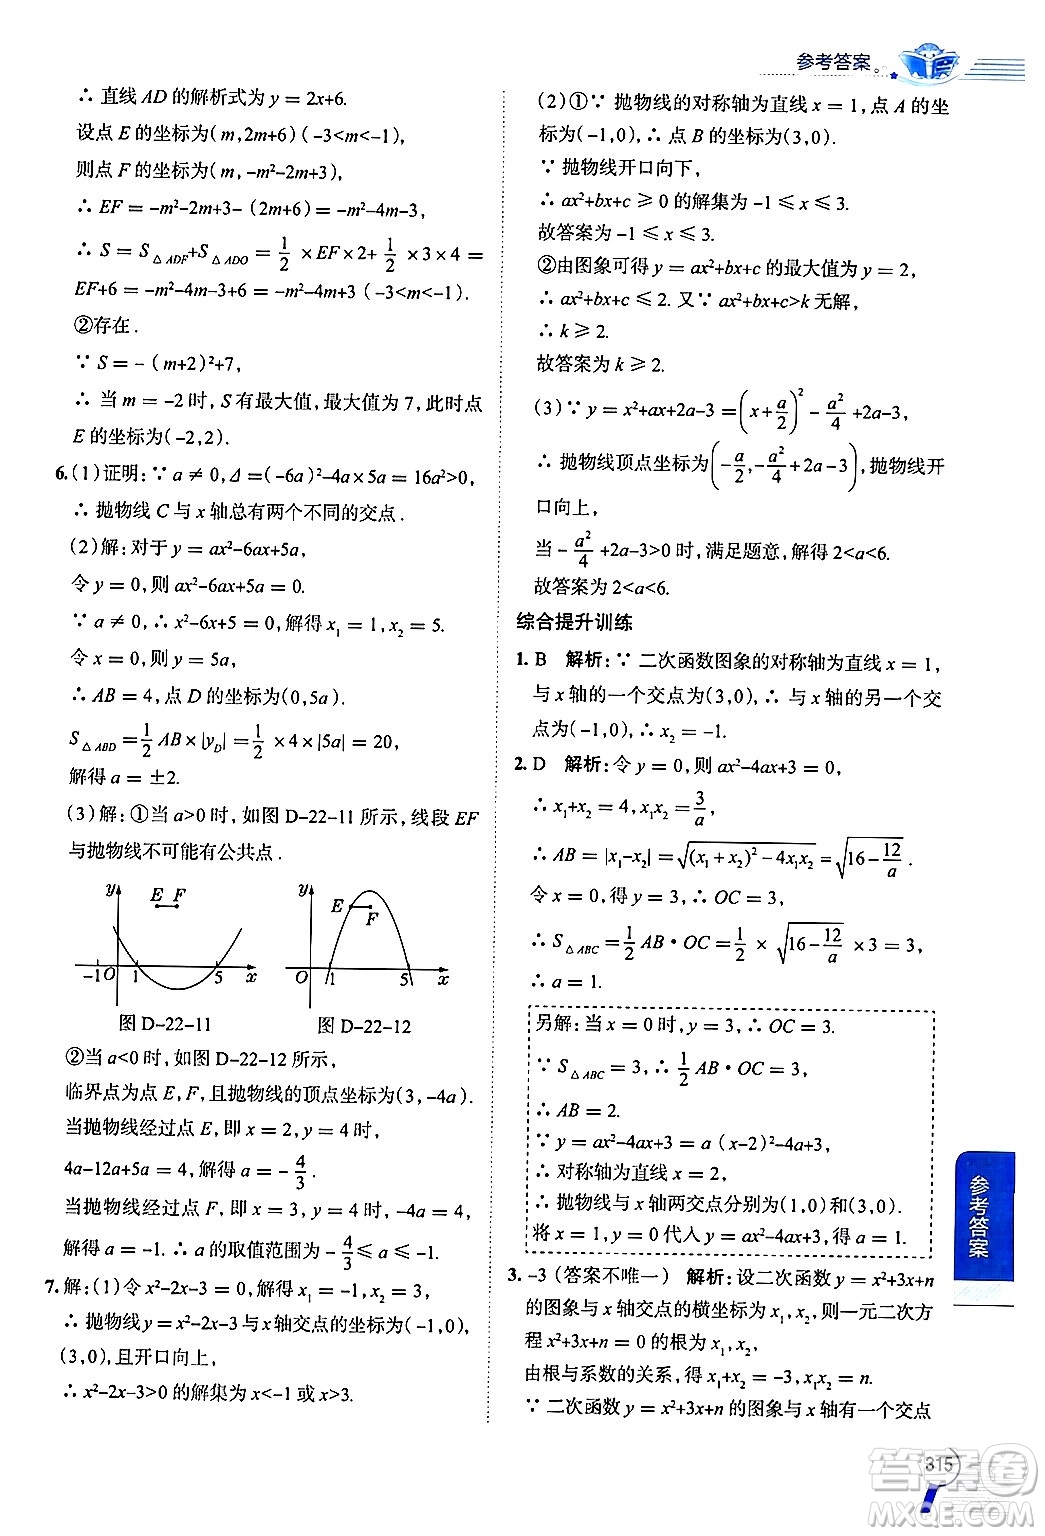 参考答案
∴ 直线 AD 的解析式为 y = 2x+6.
设点 E 的坐标为(m,2m+6)(-3<m<-1),
则点 F 的坐标为(m,-m²-2m+3),
∴ EF = -m²-2m+3-(2m+6) = -m²-4m-3,
∴ S = S△ADF+S△ADO = 1/2 ×EF×2+ 1/2 ×3×4 =
EF+6 = -m²-4m-3+6 = -m²-4m+3(-3<m<-1).
②存在.
∵ S = -(m+2)²+7,
∴ 当 m = -2 时, S 有最大值,最大值为 7,此时点
E 的坐标为(-2,2).
6.(1)证明:∵ a ≠ 0,Δ = (-6a)²-4a×5a = 16a²>0,
∴ 抛物线 C 与 x 轴总有两个不同的交点.
(2)解:对于 y = ax²-6ax+5a,
令 y = 0,则 ax²-6ax+5a = 0.
∵ a ≠ 0,∴ x²-6x+5 = 0,解得 x₁ = 1,x₂ = 5.
令 x = 0,则 y = 5a,
∴ AB = 4,点 D 的坐标为(0,5a),
S△ABD = 1/2 AB×|y_D| = 1/2 ×4×|5a| = 20,
解得 a = ±2.
(3)解:①当 a>0 时,如图 D-22-11 所示,线段 EF
与抛物线不可能有公共点.
y E F -1 O 1 5 x
y E F O 1 5 x
图 D-22-11 图 D-22-12
②当 a<0 时,如图 D-22-12 所示,
临界点为点 E,F,且抛物线的顶点坐标为(3,-4a).
当抛物线经过点 E,即 x = 2,y = 4 时,
4a-12a+5a = 4,解得 a = -4/3;
当抛物线经过点 F,即 x = 3,y = 4 时,-4a = 4,
解得 a = -1.∴ a 的取值范围为 -4/3 ⩽ a ⩽ -1.
7.解:(1)令 x²-2x-3 = 0,解得 x₁ = -1,x₂ = 3,
∴ 抛物线y = x²-2x-3与x轴交点的坐标为(-1,0),
(3,0),且开口向上,
∴ x²-2x-3>0 的解集为 x<-1 或 x>3.
(2)①∵ 抛物线的对称轴为直线 x = 1,点 A 的坐
标为(-1,0),∴ 点 B 的坐标为(3,0).
∵ 抛物线开口向下,
∴ ax²+bx+c ⩾ 0 的解集为 -1 ⩽ x ⩽ 3.
故答案为 -1 ⩽ x ⩽ 3.
②由图象可得 y = ax²+bx+c 的最大值为 y = 2,
∴ ax²+bx+c ⩽ 2. 又∵ ax²+bx+c>k 无解,
∴ k ⩾ 2.
故答案为 k ⩾ 2.
(3)∵ y = x²+ax+2a-3 = (x+a/2)² - a²/4 +2a-3,
∴ 抛物线顶点坐标为(-a/2,-a²/4+2a-3),抛物线开
口向上,
当 -a²/4 +2a-3>0 时,满足题意,解得 2<a<6.
故答案为 2<a<6.
综合提升训练
1. B 解析:∵ 二次函数图象的对称轴为直线 x = 1,
与 x 轴的一个交点为(3,0),∴ 与 x 轴的另一个交
点为(-1,0),∴ x₂ = -1.
2. D 解析:令 y = 0,则 ax²-4ax+3 = 0,
∴ x₁+x₂ = 4,x₁x₂ = 3/a,
∴ AB = |x₁-x₂| = √((x₁+x₂)²-4x₁x₂) = √(16-12/a) .
令 x = 0,得 y = 3,∴ OC = 3,
∴ S△ABC = 1/2 AB·OC = 1/2 × √(16-12/a) ×3 = 3,
∴ a = 1.
另解:当 x = 0 时,y = 3,∴ OC = 3.
∵ S△ABC = 3,∴ 1/2 AB·OC = 3,
∴ AB = 2.
∵ y = ax²-4ax+3 = a(x-2)²-4a+3,
∴ 对称轴为直线 x = 2,
∴ 抛物线与 x 轴两交点分别为(1,0)和(3,0).
将 x = 1,y = 0 代入 y = ax²-4ax+3,得 a = 1.
3. -3(答案不唯一) 解析:设二次函数 y = x²+3x+n
的图象与 x 轴交点的横坐标为 x₁,x₂,则一元二次方
程 x²+3x+n = 0 的根为 x₁,x₂,
由根与系数的关系,得 x₁+x₂ = -3,x₁x₂ = n.
∵ 二次函数 y = x²+3x+n 的图象与 x 轴有一个交点
参考答案
315
答案圈
MXQE.COM